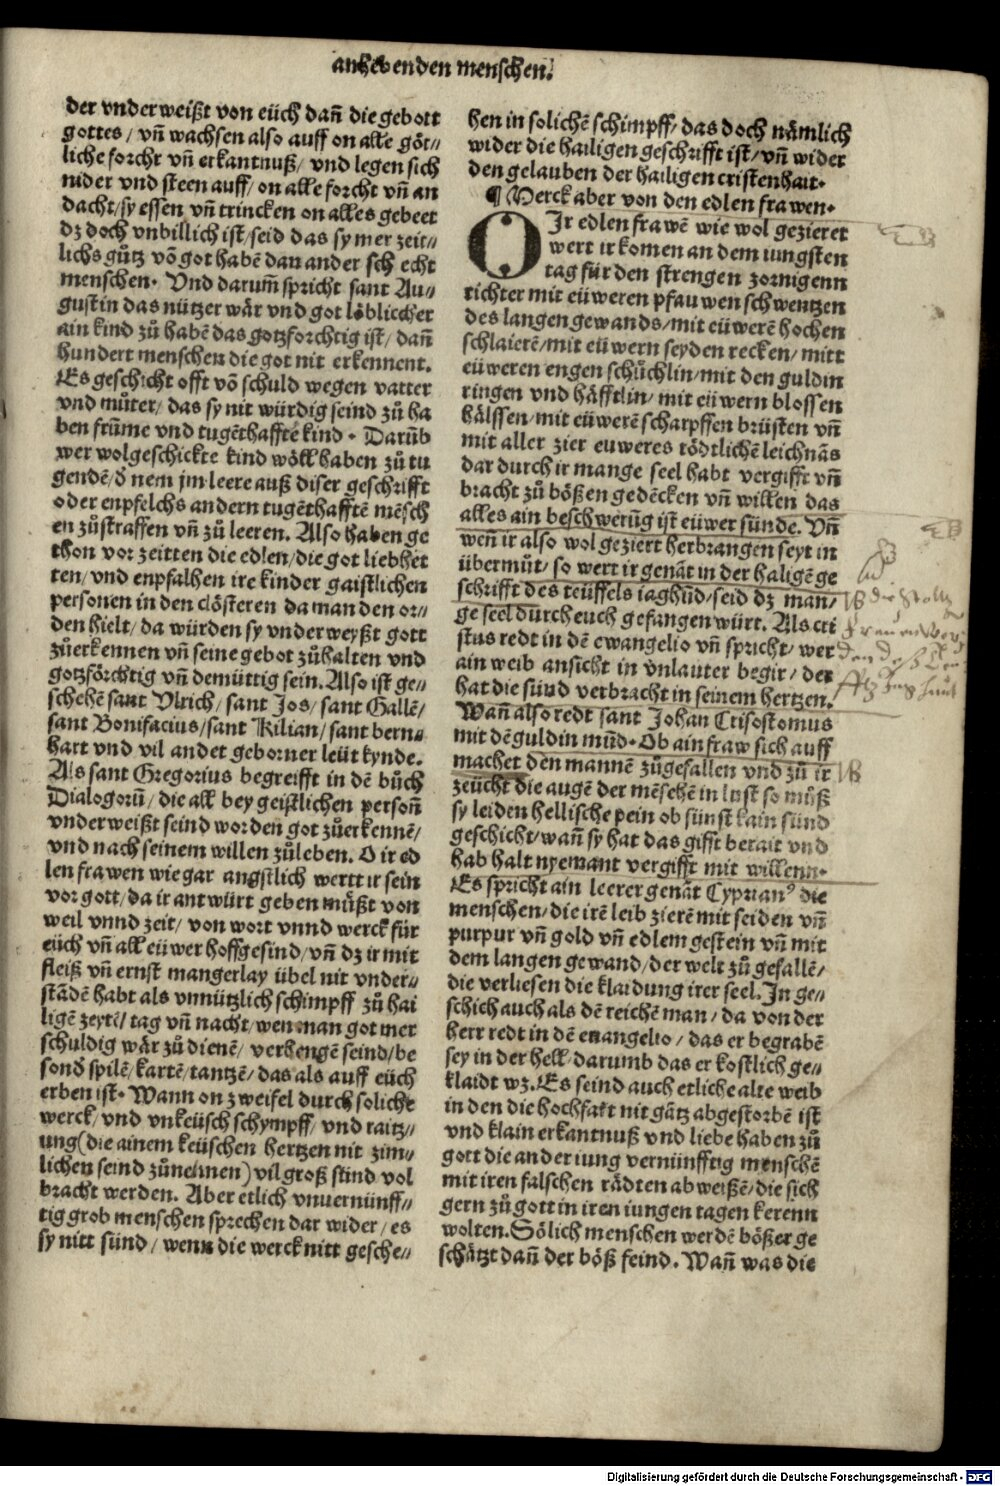 anhebenden menschen.
der vnderweißt von eüch dañ die gebott
gottes / vñ wachsen also auff on alle göt⸗
liche forcht vñ erkantnuß / vnd legen sich
nider vnd steen auff / on alle forcht vñ an
dacht / sy essen vñ trincken on alles gebeet
dz doch vnbillich ist / seid das sy mer zeit⸗
lichs gůtz võ got habẽ dan ander sch echt
menschen. Vnd darum̃ spricht sant Au⸗
gustin das nützer wär vnd got löblicher
ain kind zů habẽ das gotzforchtig ist / dañ
hundert menschen die got nit erkennent.
Es geschicht offt võ schuld wegen vatter
vnd můter / das sy nit würdig seind zů ha
ben frũme vnd tugẽthafftẽ kind. Darũb
wer wolgeschickte kind wöll haben zů tu
gendẽ / d̕ nem jm leere auß diser geschrifft
oder enpfelchs andern tugẽthafftẽ mẽsch
en zůstraffen vñ zů leeren. Also haben ge
thon vor zeitten die edlen / die got liebhet
ten / vnd enpfalhen ire kinder gaistlichen
personen in den clösteren da man den or⸗
den hielt / da würden sy vnderweyßt gott
zůerkennen vñ seine gebot zůhalten vnd
gotzförchtig vñ demüttig sein. Also ist ge⸗
schehẽ sant Vlrich / sant Jos / sant Gallẽ /
sant Bonifacius / sant Kilian / sant bern⸗
hart vnd vil andet geborner leüt kynde.
Als sant Gregorius begreifft in dẽ bůch
Dialogorũ / die all bey geistlichen persoñ
vnderweißt seind worden got zůerkennẽ /
vnd nach seinem willen zůleben. O ir ed
len frawen wie gar angstlich wertt ir sein
vor gott / da ir antwürt geben müßt von
weil vnnd zeit / von wort vnnd werck für
eüch vñ all eüwer hoffgesind / vñ dz ir mit
fleiß vñ ernst mangerlay übel nit vnder⸗
stãdẽ habt als vnnützlich schimpff zů hai
ligẽ zeytẽ / tag vñ nacht / wen man got mer
schuldig wär zů dienẽ / verhengẽ seind / be
sond̕ spilẽ / kartẽ / tantzẽ / das als auff eüch
erben ist. Wann on zweifel durch soliche
werck / vnd vnkeüsch schympff / vnd raitz⸗
ung (die ainem keüschen hertzen nit zim⸗
lichen seind zůnennen) vil groß sünd vol
bracht werden. Aber etlich vnuernünff⸗
tig grob menschen sprechen dar wider / es
sy nitt sünd / wenn die werck nitt gesche⸗
hen in solichẽ schimpff / das doch nämlich
wider die hailigen geschrifft ist / vñ wider
den gelauben der hailigen cristenhait.
¶ Merck aber von den edlen frawen.
OIr edlen frawẽ wie wol gezieret
wert ir komen an dem iungsten
tag für den strengen zornigenn
richter mit eüweren pfauwen schwentzen
des langen gewands / mit eüwerẽ hochen
schlaierẽ / mit eüwern seyden recken / mitt
eüweren engen schůchlin / mit den guldin
ringen vnd häfftlin / mit eüwern blossen
hälssen / mit eüwerẽ scharpffen brüsten vñ
mit aller zier euweres tödtlichẽ leichnãs
dar durch ir mange seel habt vergifft vñ
bracht zů bößen gedẽcken vñ willen das
alles ain beschwerũg ist eüwer sünde. Vñ
weñ ir also wol geziert herbrangen seyt in
übermůt / so wert ir genãt in der haligẽ ge
schrifft des teüffels iaghũd / seid dz man /
ge seel durch euch gefangen würt. Als cri
stus redt in dẽ ewangelio vñ spricht / wer
ain weib ansicht in vnlauter begir / der
hat die sünd verbracht in seinem hertzen.
Wañ also redt sant Johan Crisostomus
mit dẽ guldin mũd. Ob ain fraw sich auff
machet den mannẽ zůgefallen vnd zů ir
zeücht die augẽ der mẽschẽ in lust so můß
sy leiden hellische pein ob sunst kain sünd
geschicht / wañ sy hat das gifft berait vnd
hab halt nyemant vergifft mit willenn.
Es spricht ain leerer genãt Cyprianꝰ die
menschen / die irẽ leib zierẽ mit seiden vñ
purpur vñ gold vñ edlem gestein vñ mit
dem langen gewand / der welt zů gefallẽ /
die verliesen die klaidung irer seel. In ge⸗
schich auch als dẽ reichẽ man / da von der
herr redt in dẽ euangelio / das er begrabẽ
sey in der hell / darumb das er kostlich ge⸗
klaidt wz. Es seind auch etliche alte weib
in den die hochfart nit gãtz abgestorbẽ ist
vnd klain erkantnuß vnd liebe haben zů
gott die ander iung vernünfftig menschẽ
mit iren falschen rädten abweißẽ / die sich
gern zů gott in iren iungen tagen kerenn
wolten. Sölich menschen werdẽ bößer ge
schätzt dañ der böß feind. Wañ was die
Digitalisierung gefördert durch die Deutsche Forschungsgemeinschaft - DFG